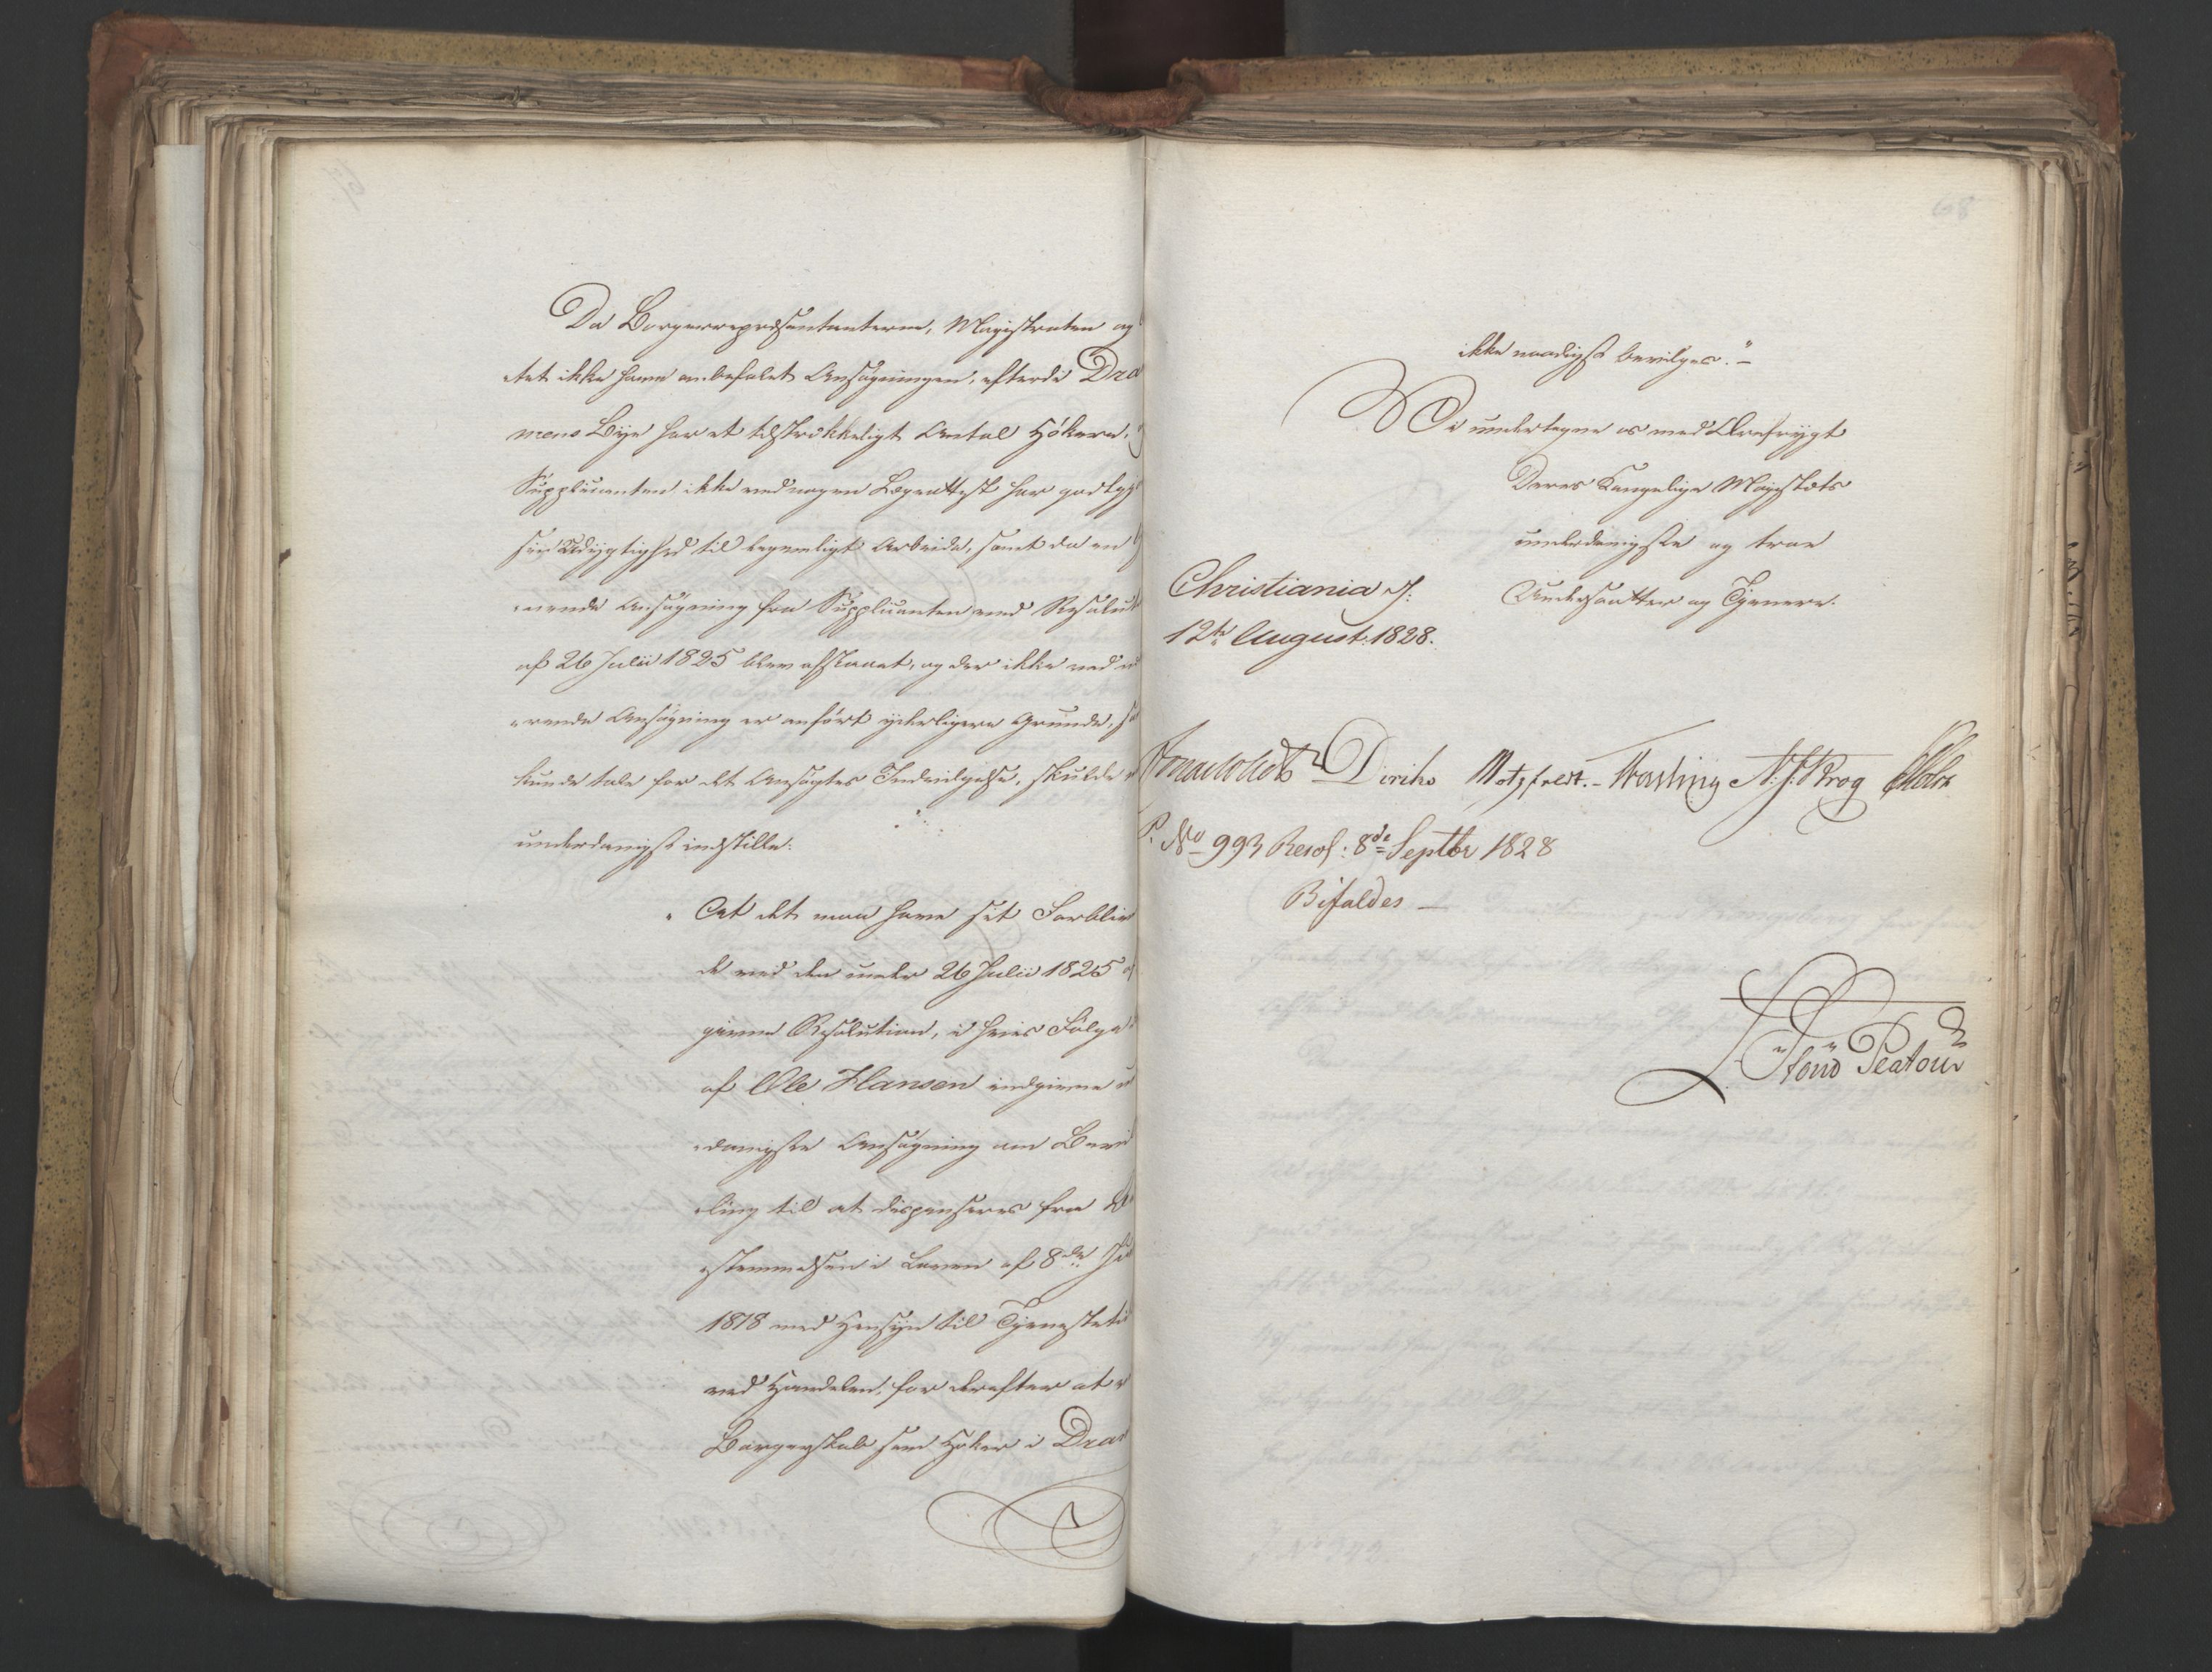 Da Borgerrepresentanterne, Magistraten og
-tet ikke have anbefalet Ansøgningen, efterdi Dra
mens Bye har et tilstrækkeligt Antal Hökere,
Supplicanten ikke ved nogen Lægeattest har godtgj
sin Udygtighed til legemligt Arbeide, samt da en
-nende Ansøgning fra Supplicanten ved Resolut
af 26 Julii 1825 blev afslaaet, og der ikke ved
-rende Ansøgning er anført yderligere Grunde, so
kunde tale for det Ansøgtes Indvilgelse, skulde
underdanigst indstille:
" At det maa have sit Forbliv
de ved den under 26 Julii 1825
givne Resolution, i hvis Følge
af Ole Hansen indgivne
-danigste Ansøgning om Bevil
-ling til at dispenseres fra Be
-stemmelsen i Loven af 8de Ju
1818 med Hensyn til Tjenestetid
ved Handelen, for derefter at
Borgerskab som Høker i Dram
ikke naadigst bevilges." -
Vi undertegne os med Ærefrygt
Deres Kongelige Majestæts
underdanigste og troe
Undersaatter og Tjenere.
Christiania d:
12te August. 1828.
Diriks Motzfeldt. - Fasting N. J. Krog
P. No 993 Resol: 8de Septbr 1828
Bifaldes -